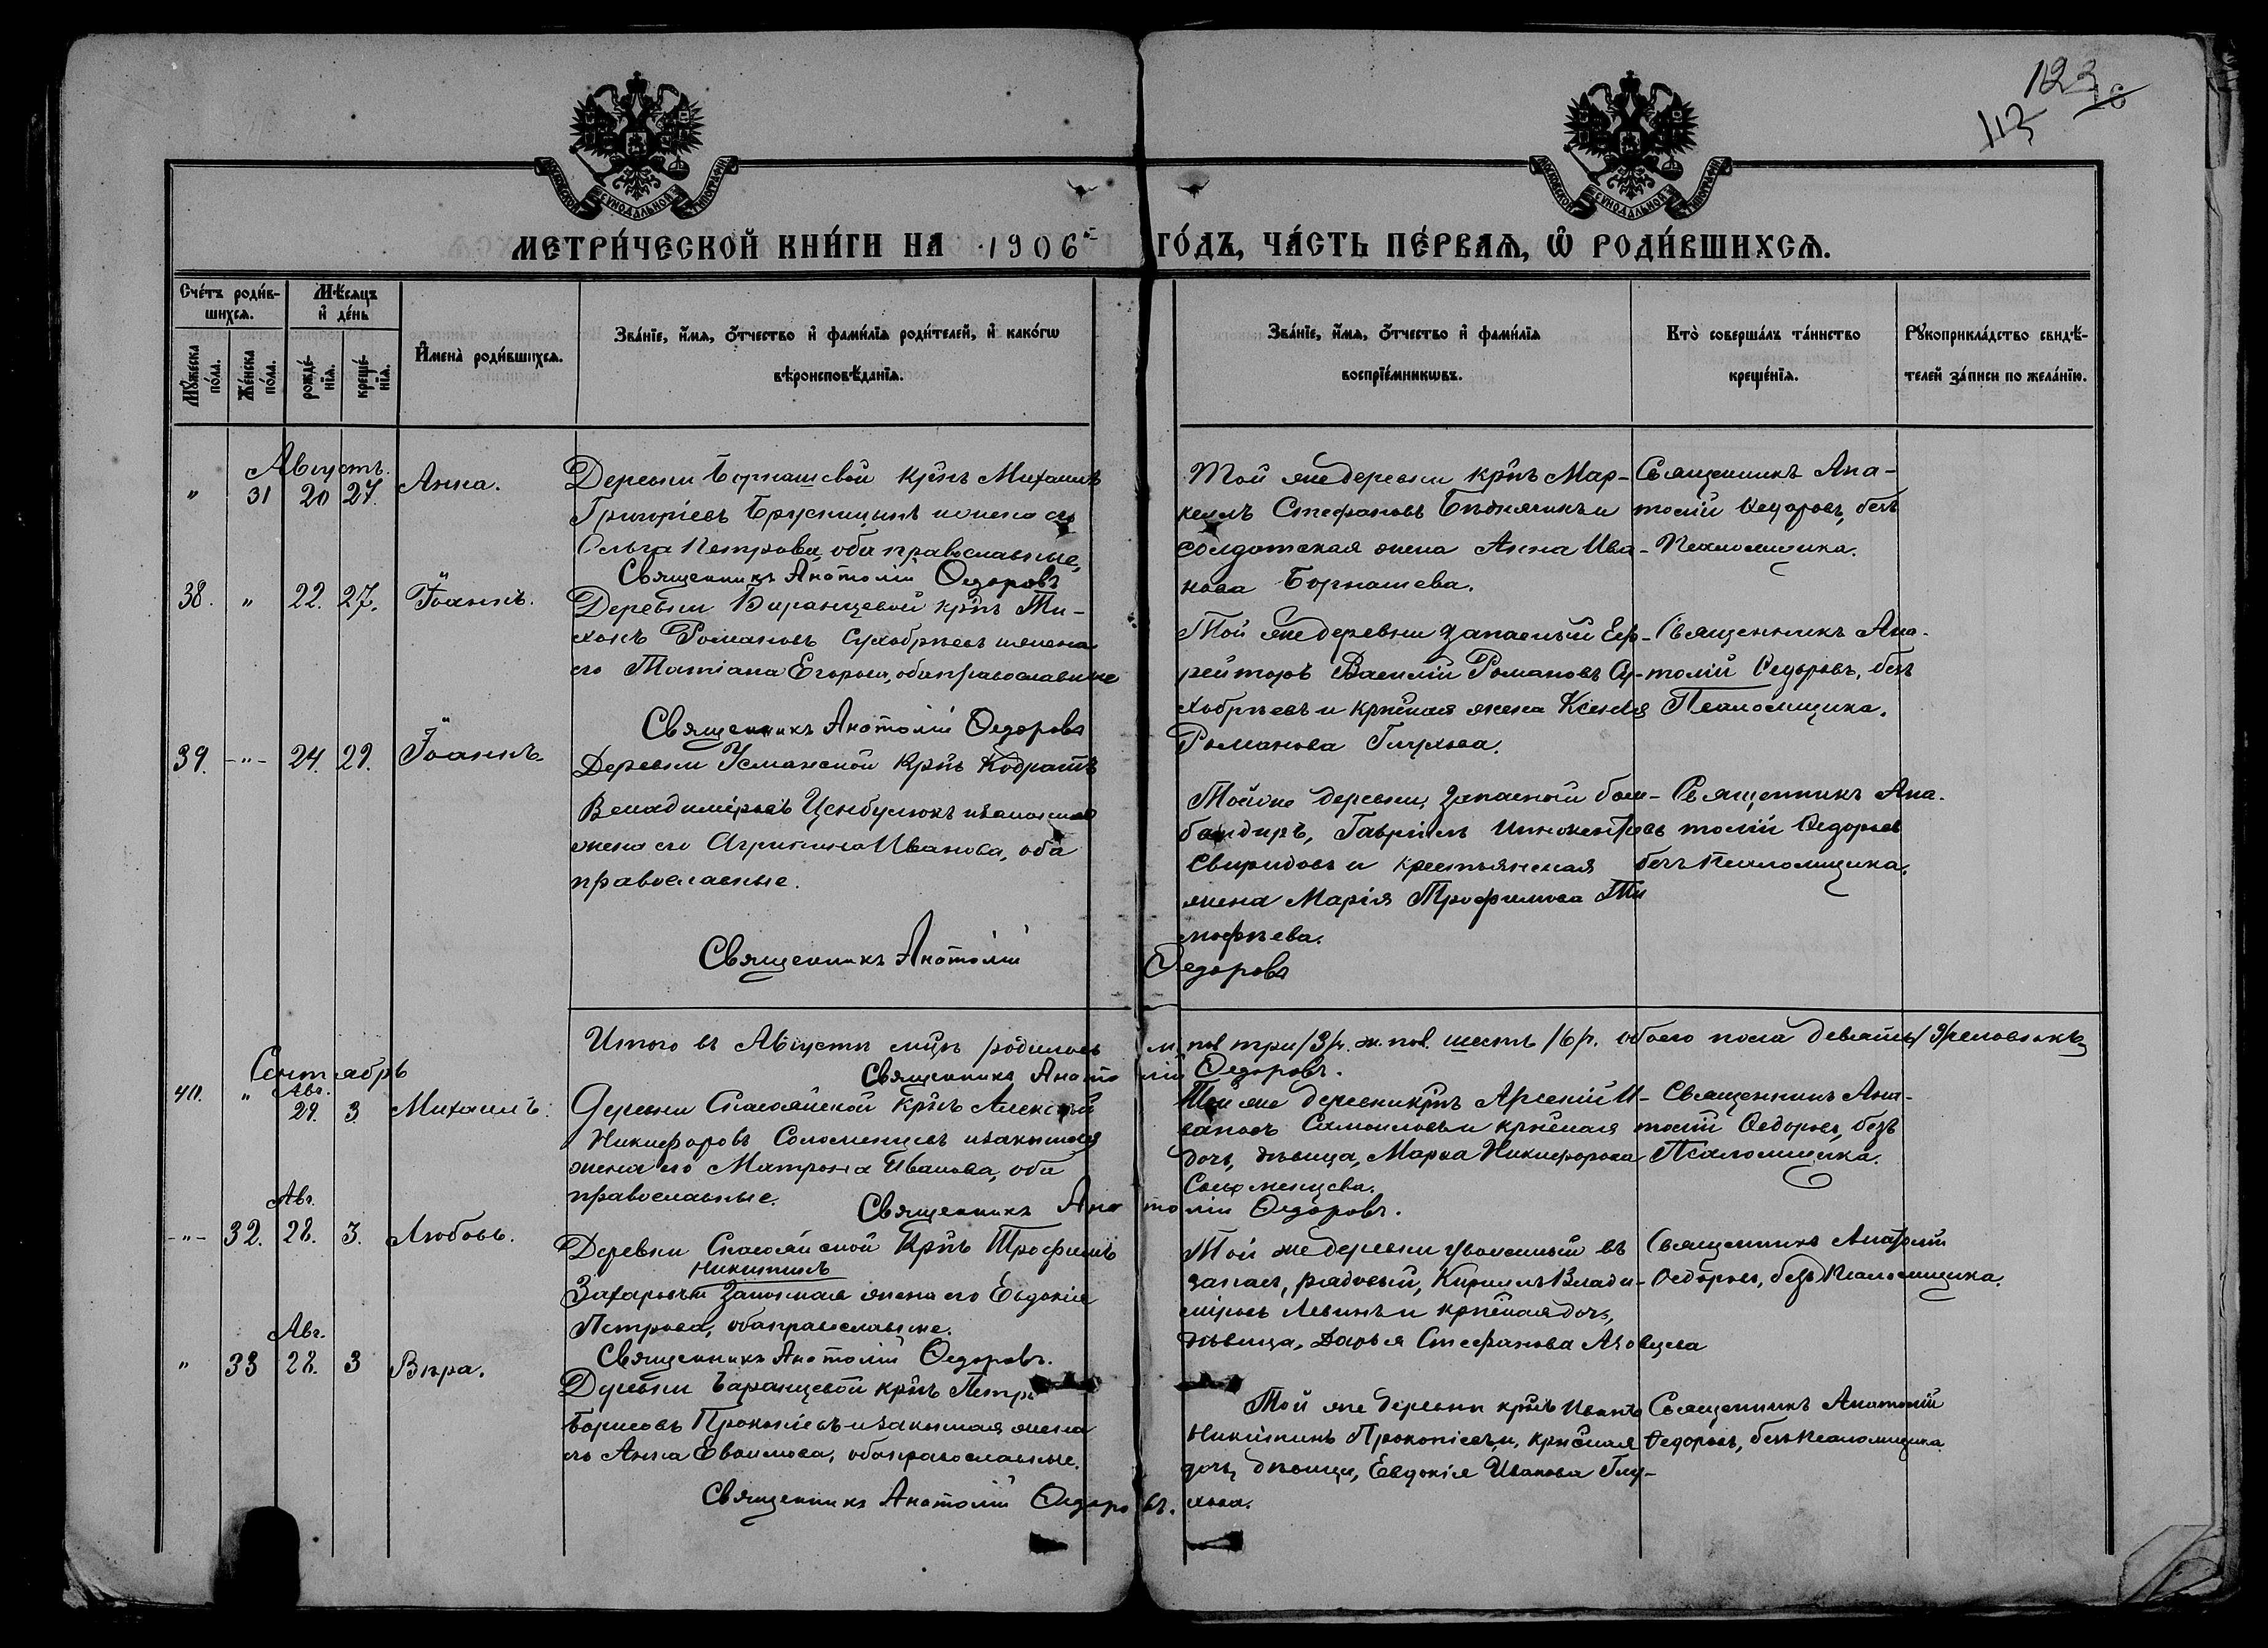 123
113
МОСКОВСКОЙ СУНОДАЛЬНОЙ ТИПОГРАФІИ
МОСКОВСКОЙ СУНОДАЛЬНОЙ ТИПОГРАФІИ
МЕТРИ́ЧЕСКОЙ КНИ́ГИ НА 1906й ГО́ДЪ, ЧА́СТЬ ПЕ́РВАѦ, Ѽ РОДИ́ВШИХСѦ.
Сче́тъ роди́в-
шихсѧ.
Мѣ́сѧцъ
и҆ де́нь
Мꙋ́жеска
по́ла.
Же́нска
по́ла.
рожде́-
нїѧ.
креще́-
нїѧ.
И҆мена̀ роди́вшихсѧ.
Зва́нїе, и҆́мѧ, ѻ҆́тчество и҆ фами́лїѧ роди́телей, и҆ како́гѡ
вѣроисповѣ́данїѧ.
Зва́нїе, и҆́мѧ, ѻ҆́тчество и҆ фами́лїѧ
воспрїе́мникѡвъ.
Кто̀ соверша́лъ та́инство
креще́нїѧ.
Рꙋкоприкла́дство свидѣ́-
телей за́писи по жела́нїю.
Августъ.
" 31 20 27. Анна.
Деревни Борнашевой кр̃нъ Михаилъ
Григоріевъ Брусницынъ и жена его
Ольга Петрова, оба православные,
Священникъ Анатолій Ѳедоровъ
Той же деревни кр̃нъ Мар-
келлъ Стефановъ Бѣднячикъ и
солдатская жена Анна Ива-
нова Борнашева.
Священникъ Ана-
толій Ѳедоровъ, безъ
Псаломщика.
38. " 22. 27. Іоаннъ.
Деревни Баранцевой кр̃нъ Ти-
хонъ Романовъ Сухобрѣевъ и жена
его Татіана Егорова, оба православные
Священникъ Анатолій Ѳедоровъ
Той же деревни запасный Еф-
рейторъ Василій Романовъ Су-
хобрѣевъ и кр̃нская жена Ксенія
Романова Глухова.
Священникъ Ана-
толій Ѳедоровъ, безъ
Псаломщика.
39. -"- 24. 29. Іоаннъ.
Деревни Усманской кр̃нъ Кодратъ
Владиміровъ Ценбулюкъ и законная
жена его Агрипина Иванова, оба
православные.
Священникъ Анатолій Ѳедоровъ
Той же деревни, запасный бом-
бандиръ, Гавріилъ Инокентіевъ
Свиридовъ и крестьянская
жена Марія Трофимова Ти
мофѣева.
Священникъ Ана-
толій Ѳедоровъ
безъ Псаломщика.
Итого въ Августѣ мц̃ѣ родилось м. пол три /3/. ж. пол. шесть /6/. обоего пола девять /9/ человѣкъ
Священникъ Анатолій Ѳедоровъ.
Сентябрь
40. " Авг. 29. 3. Михаилъ.
Деревни Спасской кр̃нъ Алексѣй
Никифоровъ Соломенцевъ и законная
жена его Матрона Иванова, оба
православные.
Священникъ Анатолій Ѳедоровъ.
Той же деревни кр̃нъ Арсеній И-
вановъ Самойловъ и кр̃нская
дочь, дѣвица, Марѳа Никифорова
Соломенцева.
Священникъ Ана-
толій Ѳедоровъ, безъ
Псаломщика.
-"- 32. Авг. 28. 3. Любовь.
Деревни Спасской кр̃нъ Трофимъ
Никитинъ
Захаровъ и Законная жена его Евдокія
Петрова, оба православные.
Священникъ Анатолій Ѳедоровъ.
Той же деревни уволенный въ
запасъ, рядовый, Кириллъ Влади-
міровъ Левинъ и кр̃нская дочь,
дѣвица, Дарья Стефанова Азовцева
Священникъ Анатолій
Ѳедоровъ, безъ Псаломщика.
" 33 Авг. 28. 3 Вѣра.
Деревни Баранцевой кр̃нъ Петръ
Борисовъ Прокопіевъ и законная жена
его Анна Евдимова, оба православные.
Священникъ Анатолій Ѳедоровъ.
Той же деревни кр̃нъ Иванъ
Никитинъ Прокопіевъ и, кр̃нская
дочь, дѣвица, Евдокія Иванова Глу-
хова.
Священникъ Анатолій
Ѳедоровъ, безъ Псаломщика